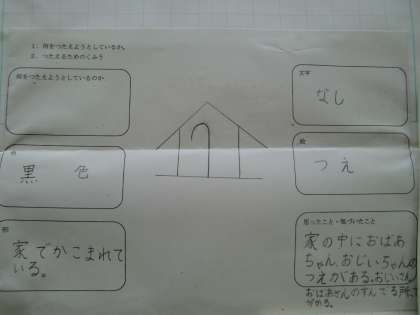 1. 何をつたえようとしているか。
2. つたえるためのくふう
何をつたえようとしているのか
色
黒 色
形
家でかこまれて
いる。
文字
なし
絵
つえ
思ったこと・気づいたこと
家の中におばあ
ちゃん、おじいちゃんの
つえがある。おじいさん、
おばあさんのすんでる所
がわかる。